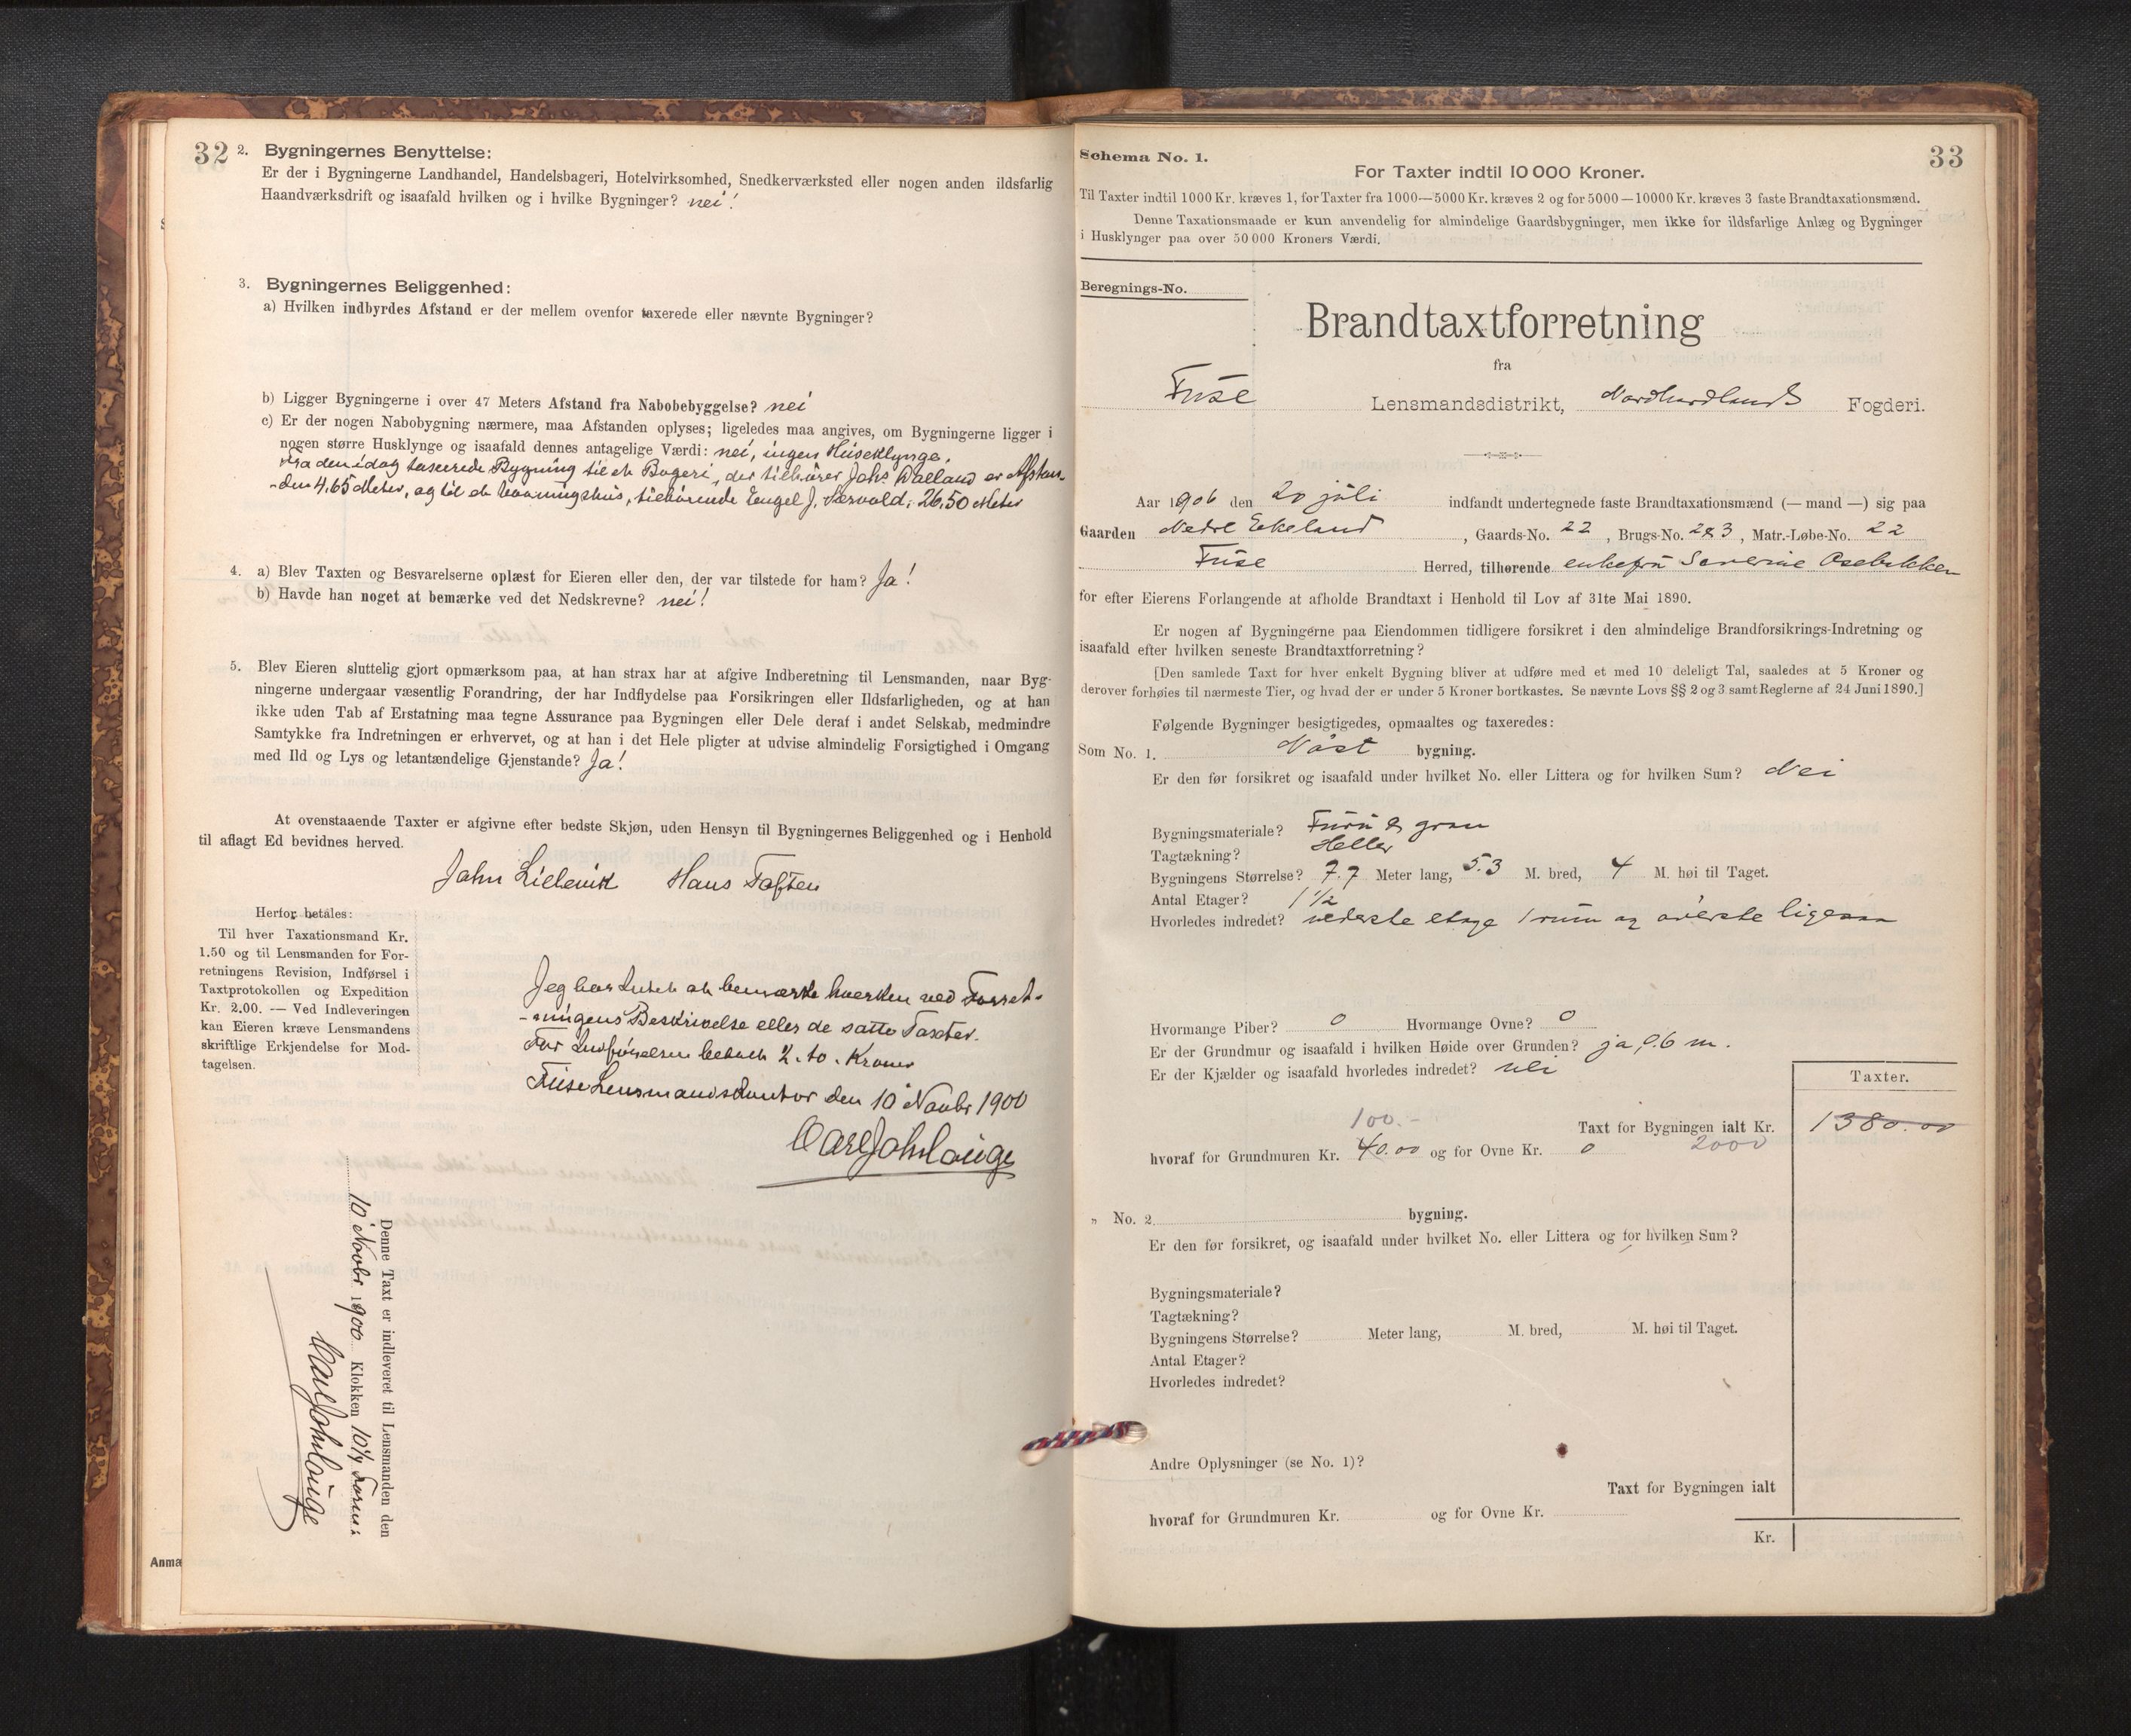 32
2. Bygningernes Benyttelse:
Er der i Bygningerne Landhandel, Handelsbageri, Hotelvirksomhed, Snedkerværksted eller nogen anden ildsfarlig
Haandværksdrift og isaafald hvilken og i hvilke Bygninger? nei!
3. Bygningernes Beliggenhed:
a) Hvilken indbyrdes Afstand er der mellem ovenfor taxerede eller nævnte Bygninger?
b) Ligger Bygningerne i over 47 Meters Afstand fra Nabobebyggelse? nei
c) Er der nogen Nabobygning nærmere, maa Afstanden oplyses; ligeledes maa angives, om Bygningerne ligger i
nogen større Husklynge og isaafald dennes antagelige Værdi: nei, ingen Huseklynge.
Fra den idag taxerede Bygning til et Bageri, der tilhører Johs. Dalland er Afstan-
-den 4,65 Meter, og til et Vaaningshus, tilhørende Engel J. Nærvold, 26,50 Meter
4. a) Blev Taxten og Besvarelserne oplæst for Eieren eller den, der var tilstede for ham? Ja!
b) Havde han noget at bemærke ved det Nedskrevne? nei!
5. Blev Eieren sluttelig gjort opmærksom paa, at han strax har at afgive Indberetning til Lensmanden, naar Byg-
ningerne undergaar væsentlig Forandring, der har Indflydelse paa Forsikringen eller Ildsfarligheden, og at han
ikke uden Tab af Erstatning maa tegne Assurance paa Bygningen eller Dele deraf i andet Selskab, medmindre
Samtykke fra Indretningen er erhvervet, og at han i det Hele pligter at udvise almindelig Forsigtighed i Omgang
med Ild og Lys og letantændelige Gjenstande? Ja!
At ovenstaaende Taxter er afgivne efter bedste Skjøn, uden Hensyn til Bygningernes Beliggenhed og i Henhold
til aflagt Ed bevidnes herved.
John Lillevik Hans Toften
Herfor betales:
Til hver Taxationsmand Kr.
1.50 og til Lensmanden for For-
retningens Revision, Indførsel i
Taxtprotokollen og Expedition
Kr. 2.00. — Ved Indleveringen
kan Eieren kræve Lensmandens
skriftlige Erkjendelse for Mod-
tagelsen.
Jeg har Intet at bemærke hverken ved Forret-
-ningens Beskrivelse eller de satte Taxter.
For Indførelsen betalt 2. to. Kroner
Fuse Lensmandskontor den 10 Novbr 1900
Carl Joh Lauge
Denne Taxt er indleveret til Lensmanden den
10 Novbr 1900 Klokken 10½ Form.
Carl Joh Lauge
Anmæ
33
Schema No. 1.
For Taxter indtil 10 000 Kroner.
Til Taxter indtil 1000 Kr. kræves 1, for Taxter fra 1000—5000 Kr. kræves 2 og for 5000—10000 Kr. kræves 3 faste Brandtaxationsmænd.
Denne Taxationsmaade er kun anvendelig for almindelige Gaardsbygninger, men ikke for ildsfarlige Anlæg og Bygninger
i Husklynger paa over 50 000 Kroners Værdi.
Beregnings-No.
Brandtaxtforretning
fra
Fuse Lensmandsdistrikt, Nordhordlands Fogderi.
Aar 1906 den 20 juli indfandt undertegnede faste Brandtaxationsmænd (— mand —) sig paa
Gaarden Nedre Eikeland, Gaards-No. 22, Brugs-No. 2&3, Matr.-Løbe-No. 22
Fuse Herred, tilhørende enkefru Severine Osebakken
for efter Eierens Forlangende at afholde Brandtaxt i Henhold til Lov af 31te Mai 1890.
Er nogen af Bygningerne paa Eiendommen tidligere forsikret i den almindelige Brandforsikrings-Indretning og
isaafald efter hvilken seneste Brandtaxtforretning?
[Den samlede Taxt for hver enkelt Bygning bliver at udføre med et med 10 deleligt Tal, saaledes at 5 Kroner og
derover forhøies til nærmeste Tier, og hvad der er under 5 Kroner bortkastes. Se nævnte Lovs §§ 2 og 3 samt Reglerne af 24 Juni 1890.]
Følgende Bygninger besigtigedes, opmaaltes og taxeredes:
Som No. 1. Nøst bygning.
Er den før forsikret og isaafald under hvilket No. eller Littera og for hvilken Sum? Nei
Bygningsmateriale? Furu & gran
Tagtækning? Heller
Bygningens Størrelse? 7.7 Meter lang, 5.3 M. bred, 4 M. høi til Taget.
Antal Etager? 1 ½
Hvorledes indredet? nederste etage 1 rum og øverste ligesaa
Hvormange Piber? 0 Hvormange Ovne? 0
Er der Grundmur og isaafald i hvilken Høide over Grunden? ja, 0.6 m.
Er der Kjælder og isaafald hvorledes indredet? nei
Taxter.
100.-
Taxt for Bygningen ialt Kr. 1380.00
hvoraf for Grundmuren Kr. 40.00 og for Ovne Kr. 0 2000
„ No. 2 bygning.
Er den før forsikret, og isaafald under hvilket No. eller Littera og for hvilken Sum?
Bygningsmateriale?
Tagtækning?
Bygningens Størrelse? Meter lang, M. bred, M. høi til Taget.
Antal Etager?
Hvorledes indredet?
Andre Oplysninger (se No. 1)?
Taxt for Bygningen ialt
hvoraf for Grundmuren Kr. og for Ovne Kr.
Kr.